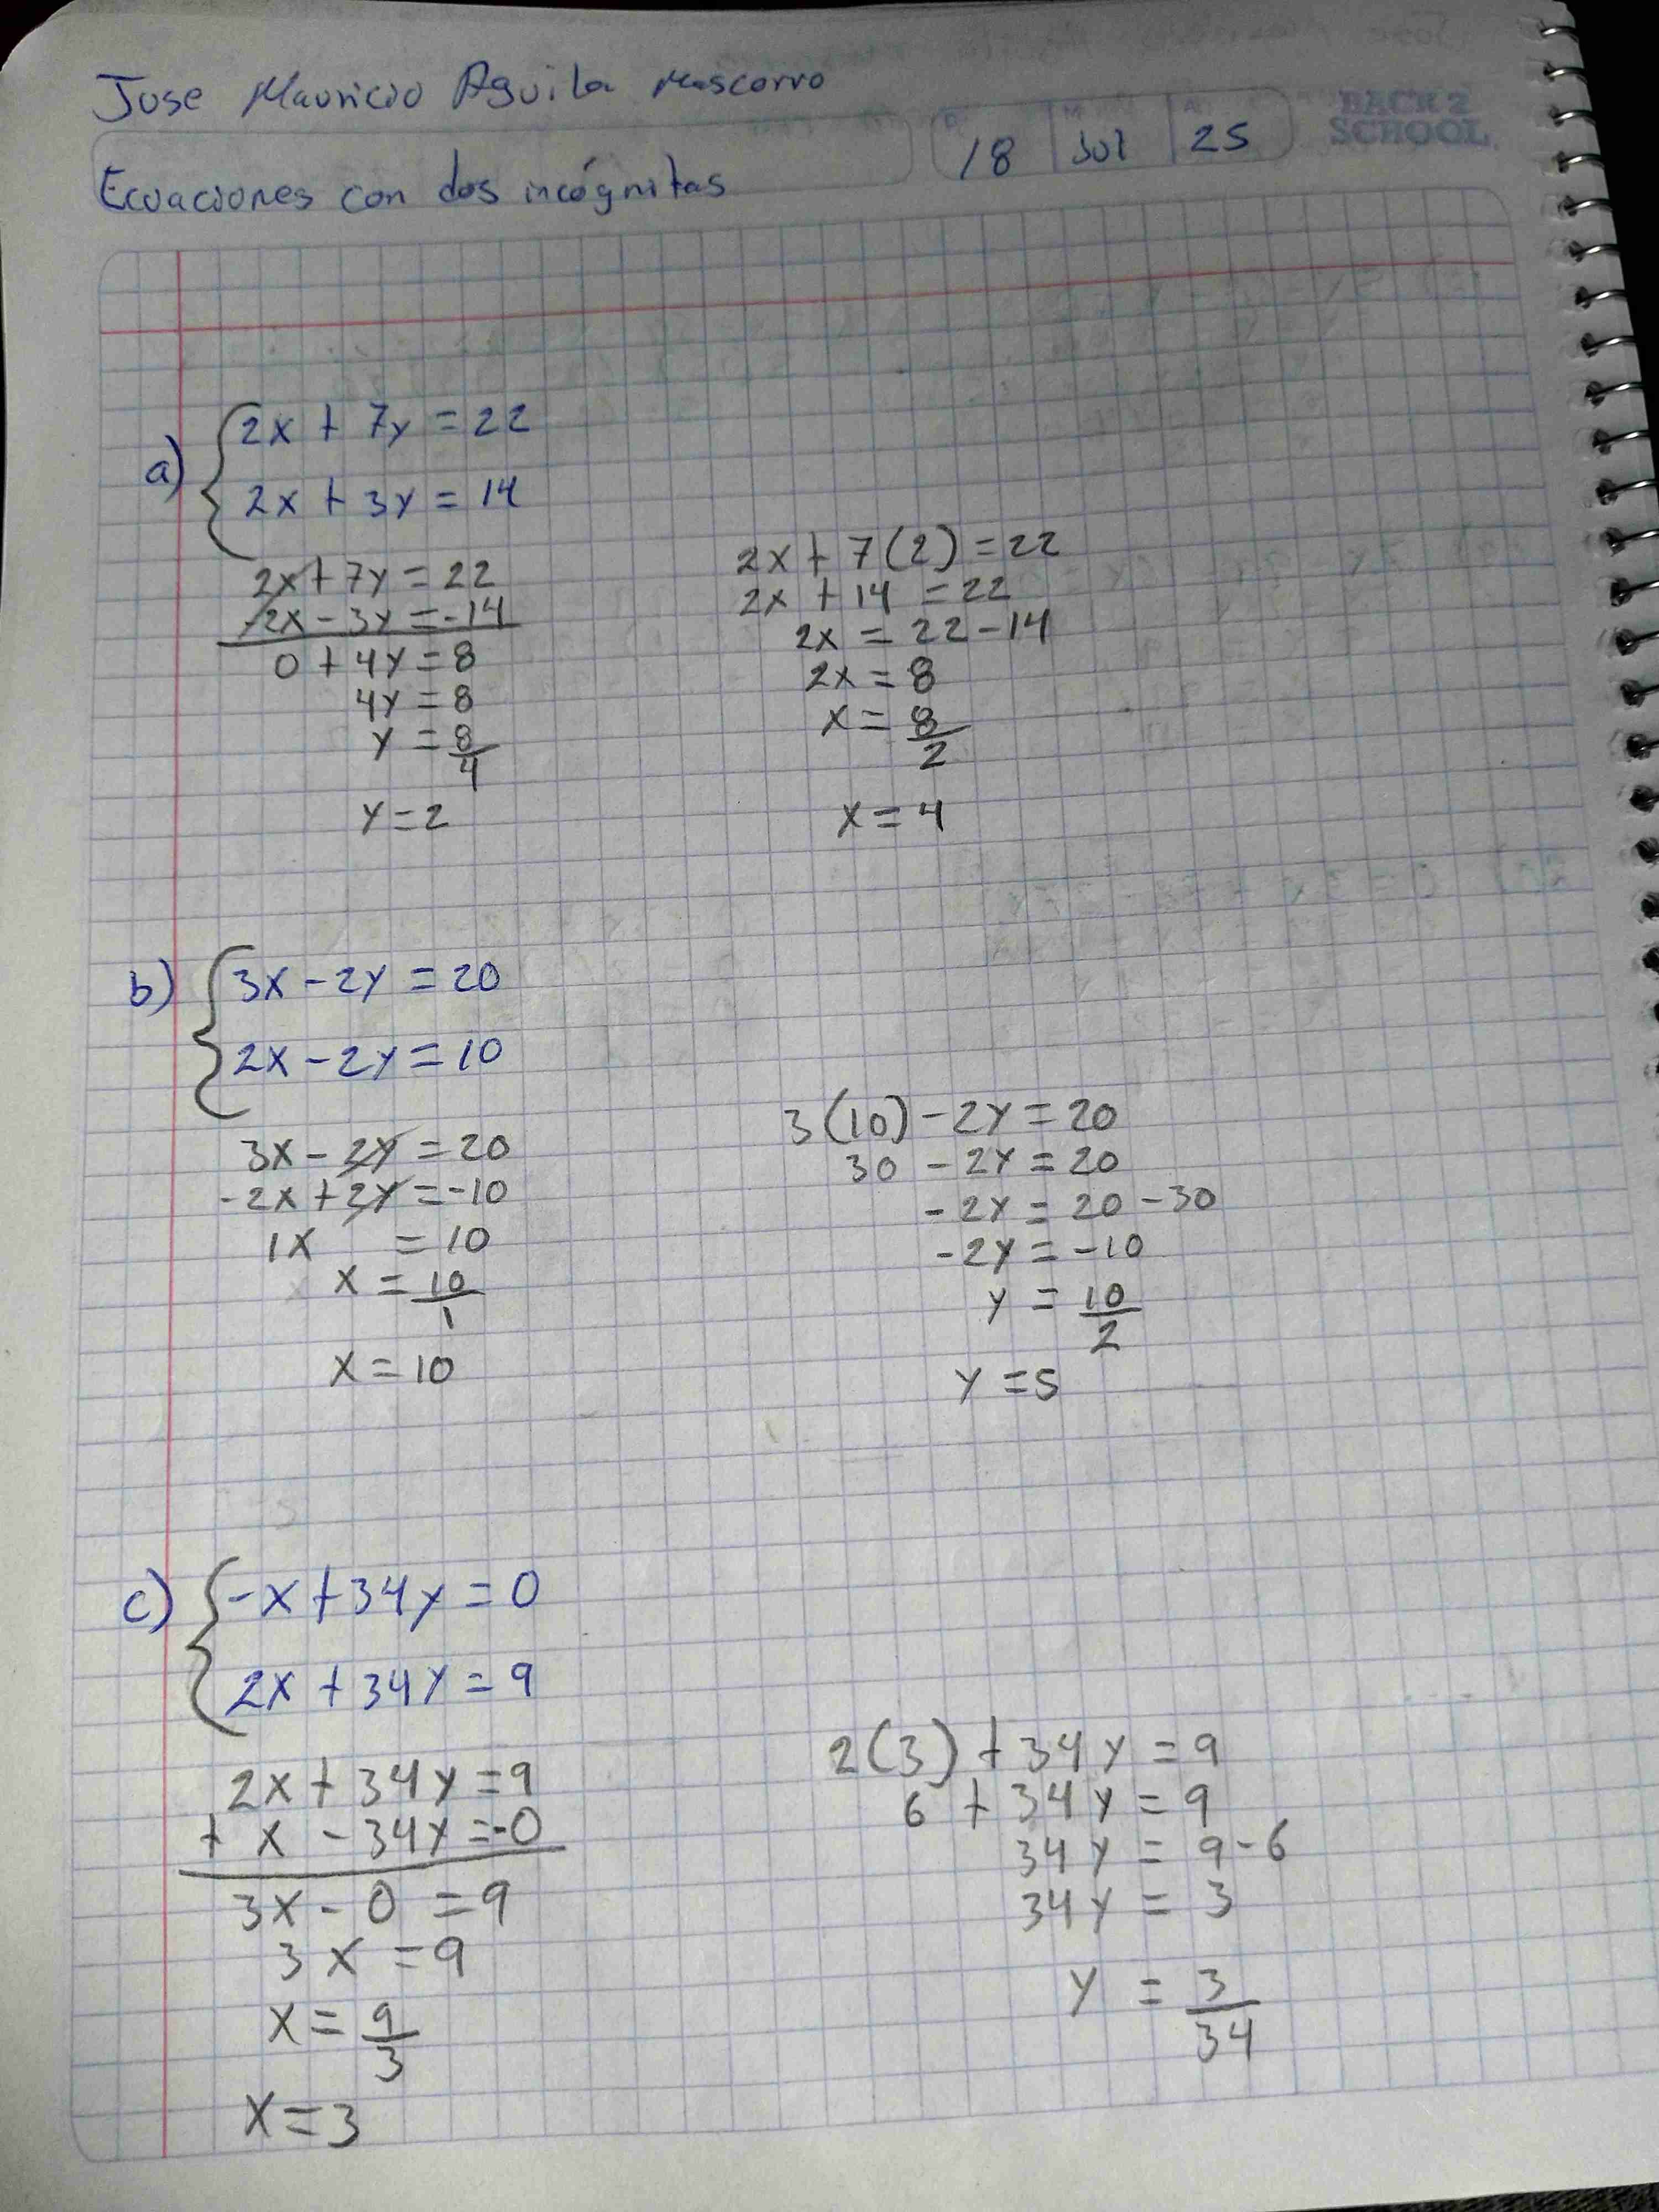 Jose Mauricio Aguila Mascorro
Ecuaciones con dos incógnitas
D M A
18 Jul 25
BACK 2
SCHOOL
a) 2x + 7y = 22
2x + 3y = 14
2x + 7y = 22
-2x - 3y = -14
0 + 4y = 8
4y = 8
y = 8/4
y = 2
2x + 7(2) = 22
2x + 14 = 22
2x = 22 - 14
2x = 8
x = 8/2
x = 4
b) 3x - 2y = 20
2x - 2y = 10
3x - 2y = 20
-2x + 2y = -10
1x = 10
x = 10/1
x = 10
3(10) - 2y = 20
30 - 2y = 20
-2y = 20 - 30
-2y = -10
y = 10/2
y = 5
c) -x + 34y = 0
2x + 34y = 9
2x + 34y = 9
+ x - 34y = -0
3x - 0 = 9
3x = 9
x = 9/3
x = 3
2(3) + 34y = 9
6 + 34y = 9
34y = 9 - 6
34y = 3
y = 3/34